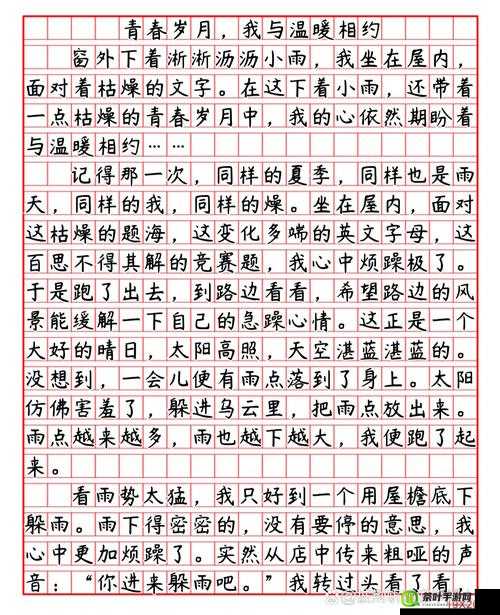 青春岁月，我与温暖相约
窗外下着淅淅沥沥小雨，我坐在屋内，
面对着枯燥的文字。在这下着小雨，还带着
一点枯燥的青春岁月中，我的心依然期盼着
与温暖相约……
记得那一次，同样的夏季，同样也是雨
天，同样的我，同样的燥。坐在屋内，面对
这枯燥的题海，这变化多端的英文字母，这
百思不得其解的竞赛题，我心中烦躁极了。
于是跑了出去，到路边看看，希望路边的风
景能缓解一下自己的急躁心情。这正是一个
大好的晴日，太阳高照，天空湛蓝湛蓝的。
没想到，一会儿便有雨点落到了身上。太阳
仿佛害羞了，躲进乌云里，把雨点放出来。
雨点越来越多，雨也越下越大，我便跑了起
来。
看雨势太猛，我只好到一个用屋檐底下
躲雨。雨下得密密的，没有要停的意思，我
心中更加烦躁了。突然从店中传来粗哑的声
音：“你进来躲雨吧。”我转过头看了看，
茶叶手游网